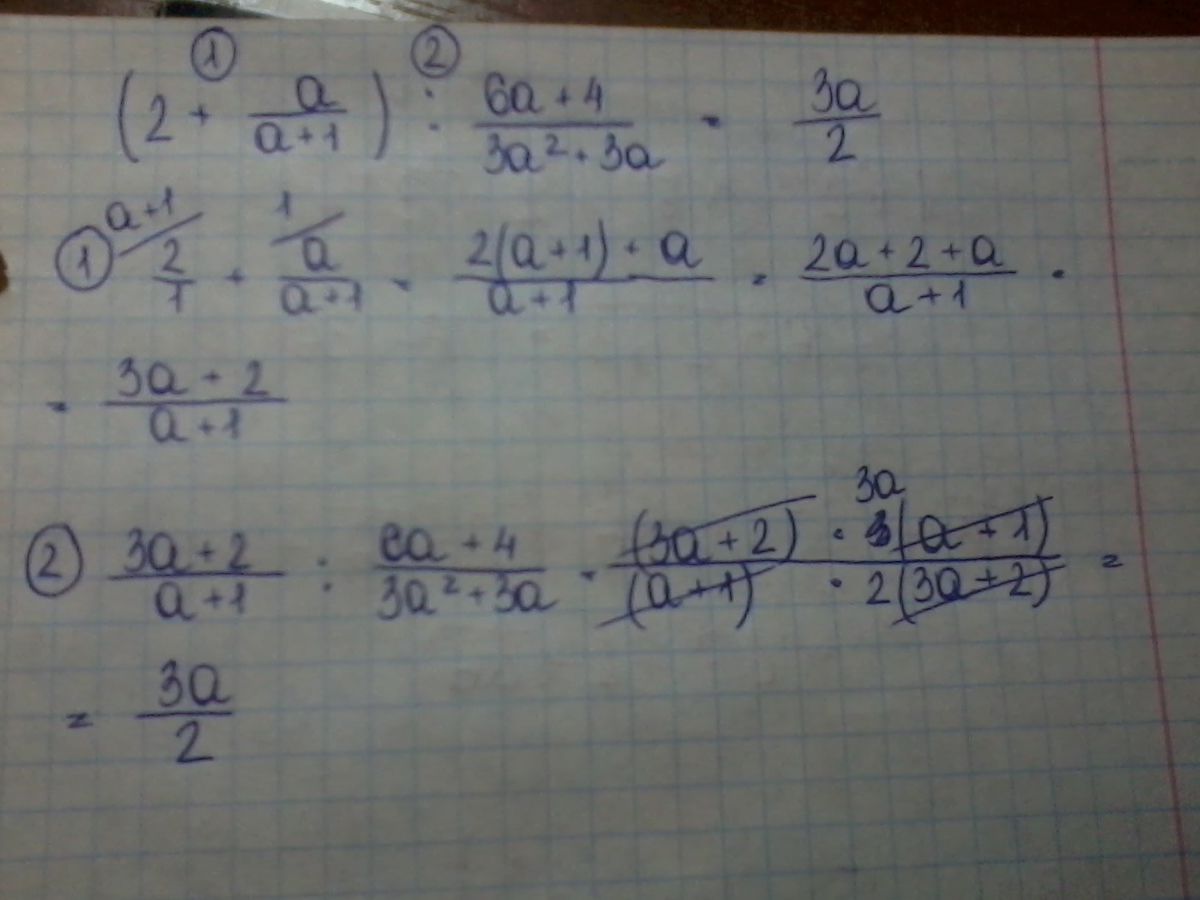 ① ②
(2 + a/(a+1)) : (6a+4)/(3a²+3a) = 3a/2
① a+1/ 2/1 + 1/ a/(a+1) = (2(a+1)+a)/(a+1) = (2a+2+a)/(a+1) =
= (3a+2)/(a+1)
② (3a+2)/(a+1) : (6a+4)/(3a²+3a) = ((3a+2) · 3a(a+1))/((a+1) · 2(3a+2)) =
= 3a/2